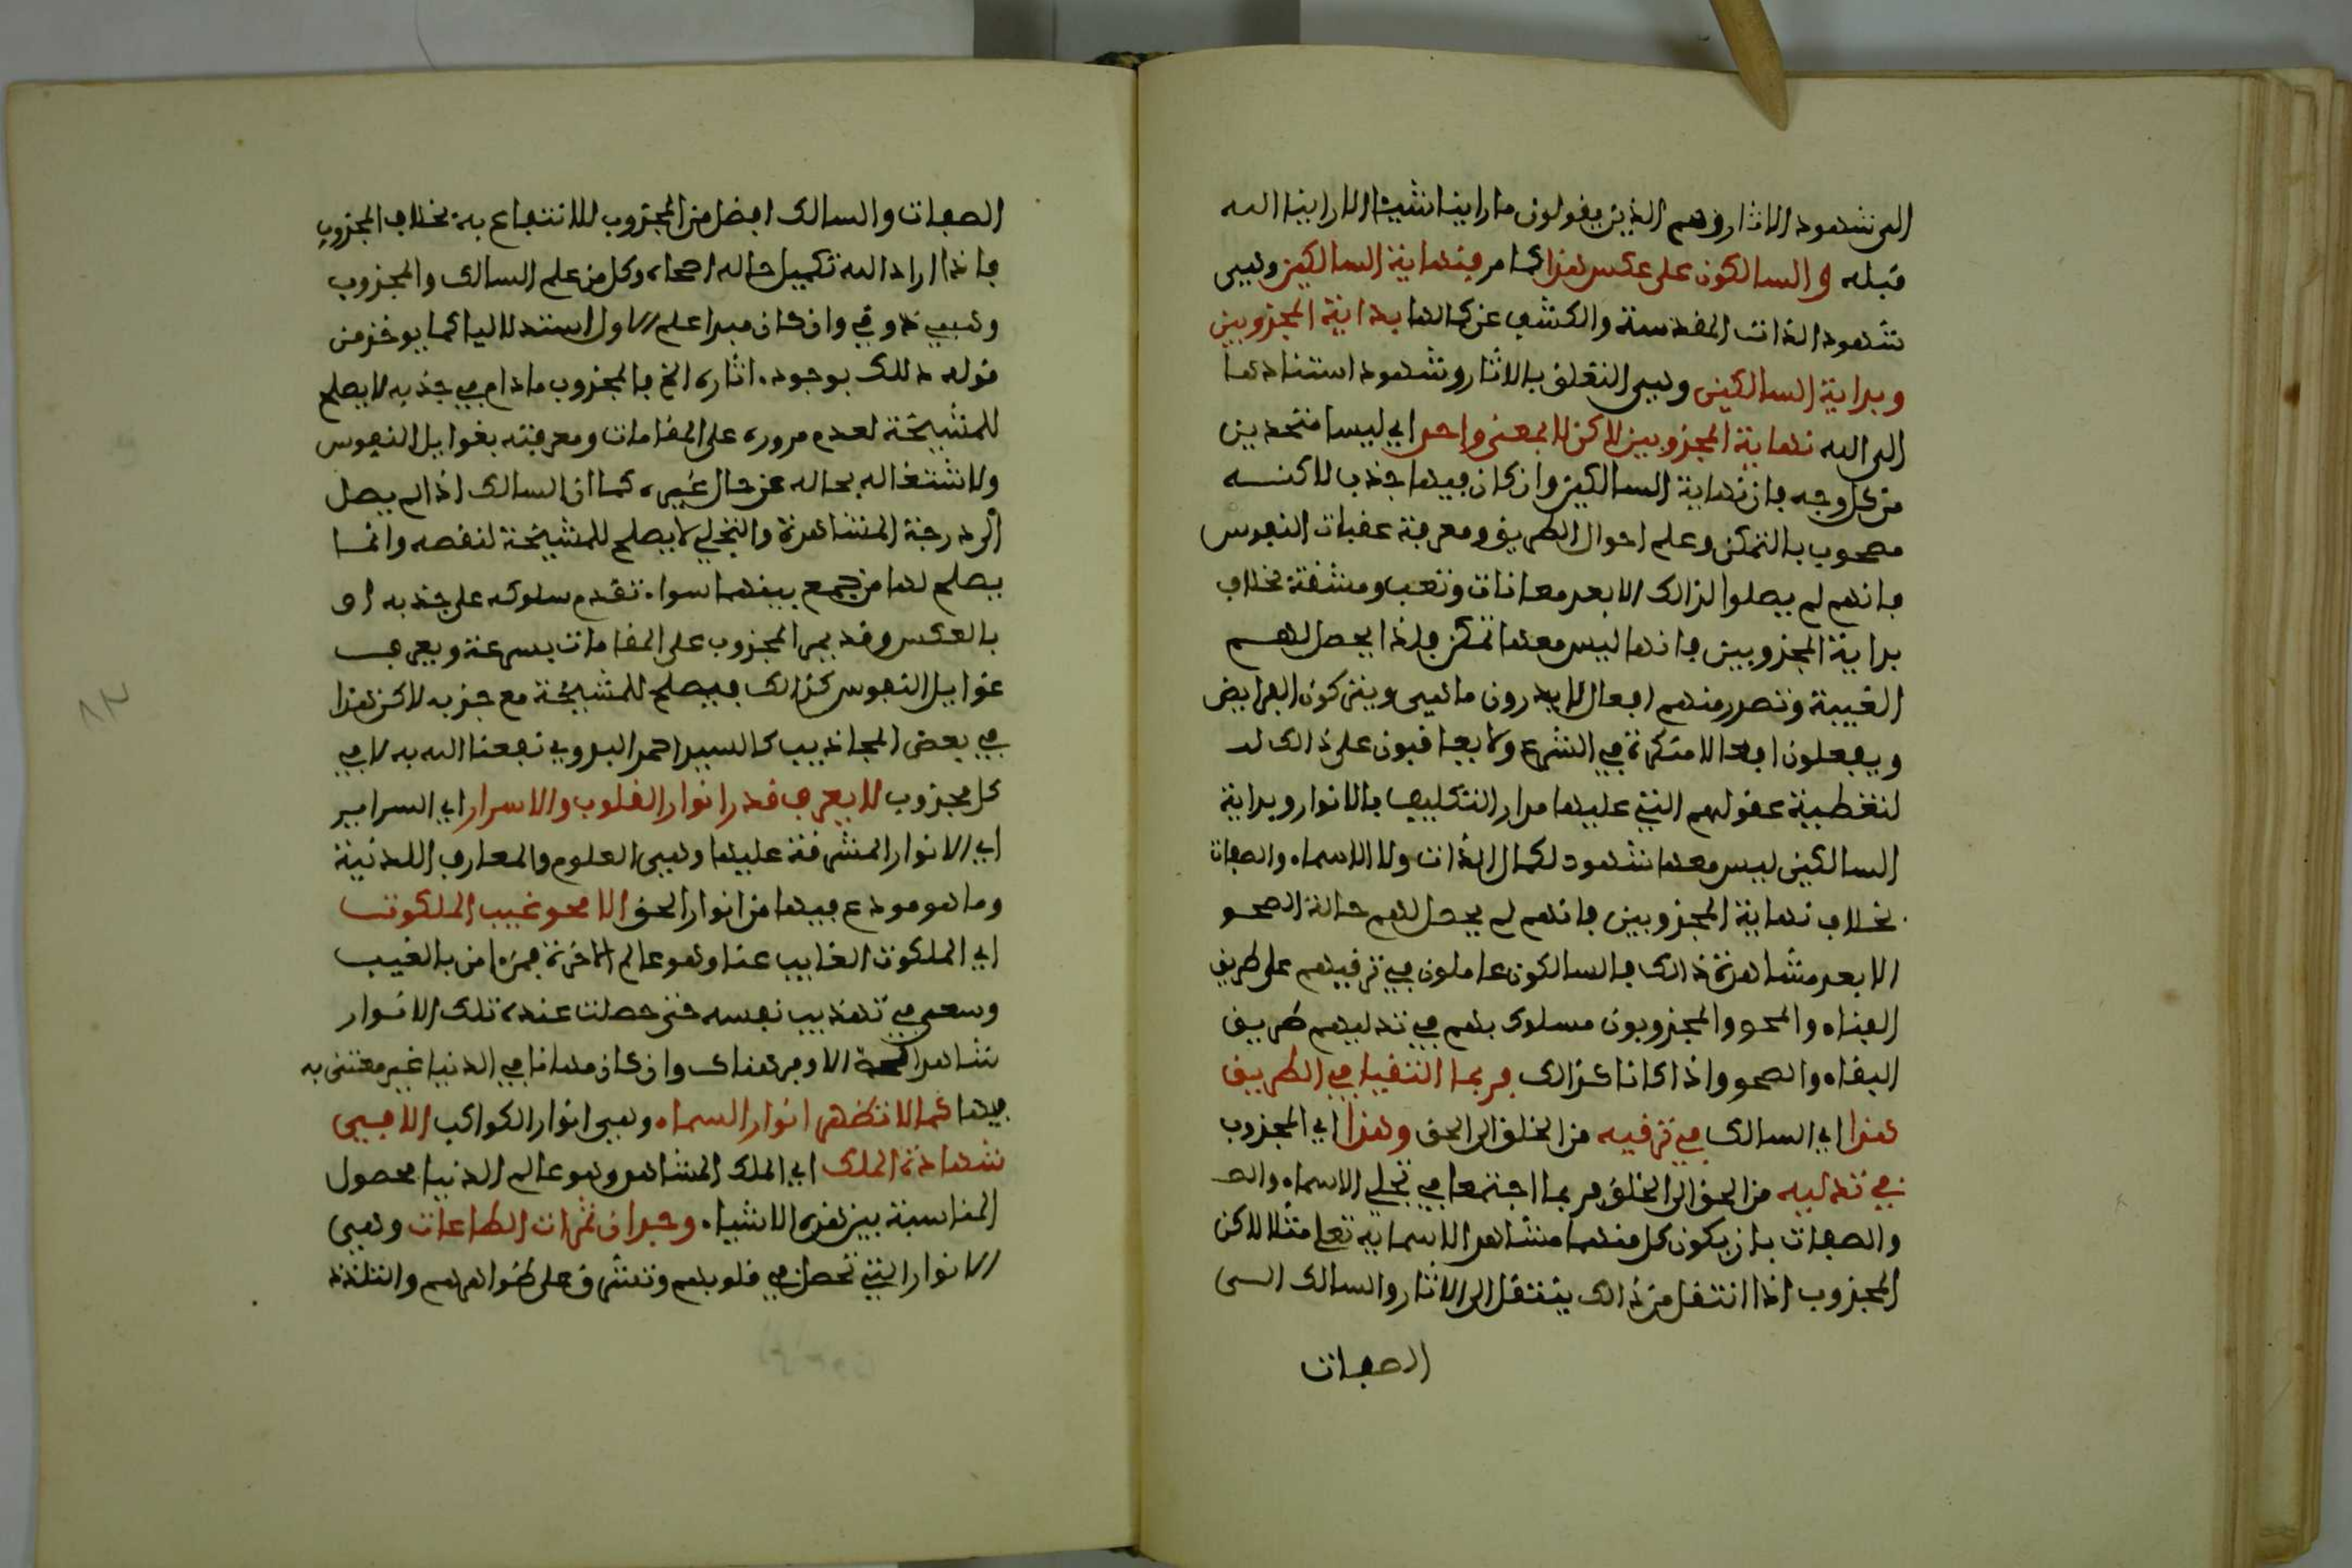 الى شهود الاثار وهم الذين يقولون ما راينا شيئا الا راينا الله
قبله والسالكون على عكس هذا كما مر فنهاية السالكين وهي
شهود الذات المقدسة والكشف عن كمالها بداية المجذوبين
وبداية السالكين وهي التعلق بالاثار وشهود استنادها
الى الله نهاية المجذوبين لاكن لا بمعنى واحد اي ليسا متحدين
من كل وجه فان نهاية السالكين وان كان فيها جذب لاكنه
مصحوب بالتمكن وعلم احوال الطريق ومعرفة عقبات النفوس
فانهم لم يصلوا لذالك الا بعد معانات وتعب ومشقة بخلاف
بداية المجذوبين فانها ليس معها تمكن فلذا يحصل لهم
الغيبة وتصدر منهم افعال لا يدرون ما هي ويتركون الفرايض
ويفعلون افعالا منكرة في الشرع ولا يعاقبون على ذالك لد
لتغطية عقولهم التي عليها مدار التكليف بالانوار وبداية
السالكين ليس معها شهود لكمال الذات ولا الاسماء والصفات
بخلاف نهاية المجذوبين فانهم لم يحصل لهم حالة الصحو
الا بعد مشاهدة ذالك فالسالكون عاملون في ترقيهم على طريق
الفناء والمحو والمجذوبون مسلوك بهم في تدليهم طريق
البقاء والصحو واذا كانا كذالك فربما التقيا في الطريق
هذا اي السالك في ترقيه من الخلق الى الحق وهذا اي المجذوب
في تدليه من الحق الى الخلق فربما اجتمعا في تجلي الاسماء والصـ
والصفات بان يكون كل منهما مشاهد الاسمايه تعلى مثلا لاكن
المجذوب اذا انتقل من ذالك ينتقل الى الاثار والسالك الى
الصفات
الصفات والسالك افضل من المجذوب للانتفاع به بخلاف المجذوب
فاذا اراد الله تكميل حاله اصحاه وكل من علم السالك والمجذوب
وهبي ذوقي وان كان مبدا علم الاول استدلاليا كما يوخذ من
قوله دلك بوجود اثاره الخ فالمجذوب مادام في جذبه لا يصلح
للمشيخة لعدم مروره على المقامات ومعرفته بغوايل النفوس
ولاشتغاله بحاله عن حال غيره كما ان السالك اذا لم يصل
الى درجة المشاهدة والتجلي لا يصلح للمشيخة لنقصه وانما
يصلح لها من جمع بينهما سواء تقدم سلوكه على جذبه او
بالعكس وقد يمر المجذوب على المقامات بسرعة ويعرف
غوايل النفوس كذالك فيصلح للمشيخة مع جذبه لاكن هذا
في بعض المجاذيب كالسيد احمد البدوي نفعنا الله به لا في
كل مجذوب لا يعرف قدر انوار القلوب والاسرار اي السراير
اي الانوار المشرقة عليها وهي العلوم والمعارف اللدنية
وما هو مودع فيها من انوار الحق الا في غيب الملكوت
اي الملكوت الغايب عنا وهو عالم الاخرة فمن امن بالغيب
وسعى في تهذيب نفسه حتى حصلت عنده تلك الانوار
شاهد الاوفر هناك وان كان مهانا في الدنيا غير معتنى به
فيها كما لا تظهر انوار السماء وهي انوار الكواكب الا في
شهادة الملك اي الملك المشاهد وهو عالم الدنيا لحصول
المناسبة بين هذه الاشياء وجدان ثمرات الطاعات وهي
الانوار التي تحصل في قلوبهم وتشرق على ظواهرهم والتلذذ